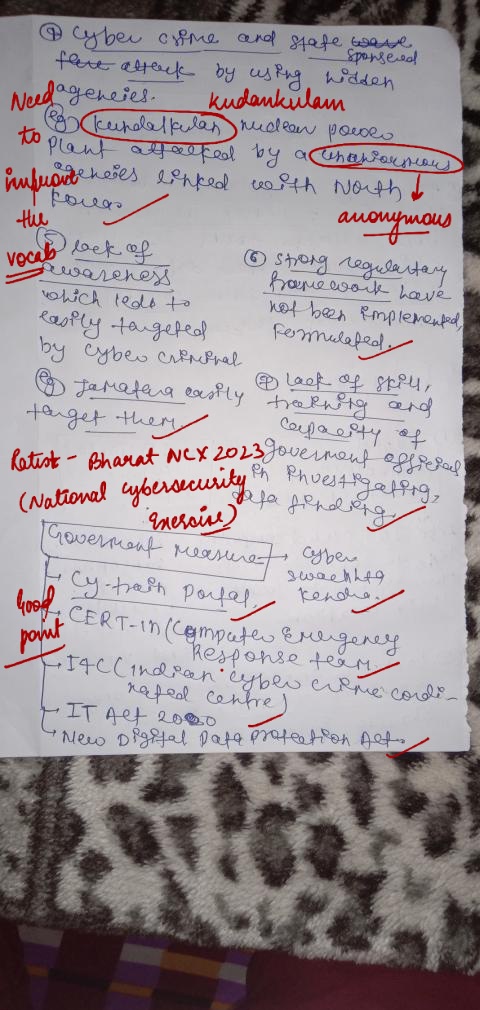 ④ Cyber crime and state sponsered
attack by using hidden
agencies.
Need to improve the vocab
kudankulam
(eg) Kundalkulan nuclear power
plant attacked by a unanioumous
agencies linked with North
Korea.
anonymous
⑤ lack of
awareness
which leds to
easily targeted
by cyber criminal
(eg) Jamatara easily
target them.
⑥ Strong regulatory
framework have
not been implemented,
Formulated.
⑦ lack of skill,
training and
capacity of
goverment official
in investigating,
data finding.
Latest - Bharat NCX 2023
(National Cybersecurity
Exercise)
Goverment measure → Cyber
swachhta
kendra.
→ Cy-train portal,
Good
point
→ CERT-in (Computer Emergency
Response team.
→ I4C (indian cyber crime cordi-
nated centre)
→ IT Act 2000
→ New Digital Data protection Act.